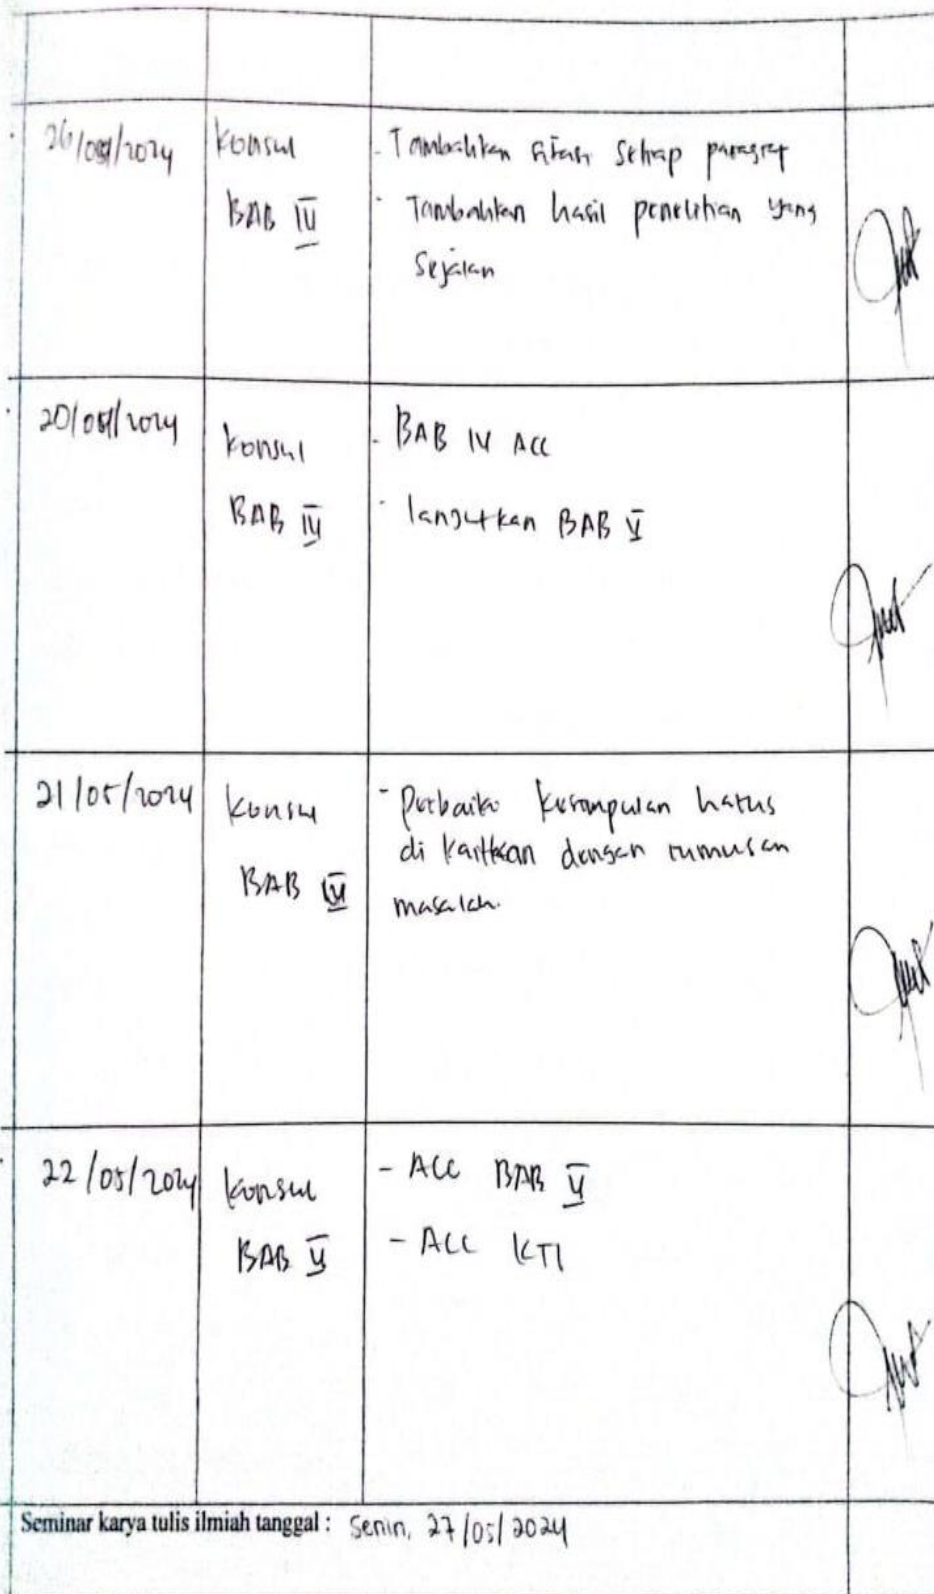 konsul
BAB IV
- Tambahkan sitasi setiap paragraf
- Tambahkan hasil penelitian yang
sejalan
konsul
BAB IV
- BAB IV ACC
- lanjutkan BAB V
21/05/2024
konsul
BAB
- Perbaiki kesimpulan harus
di kaitkan dengan rumusan
masalah.
22/05/2024
konsul
BAB V
- ACC BAB V
- ACC KTI
Seminar karya tulis ilmiah tanggal : Senin, 27/05/2024